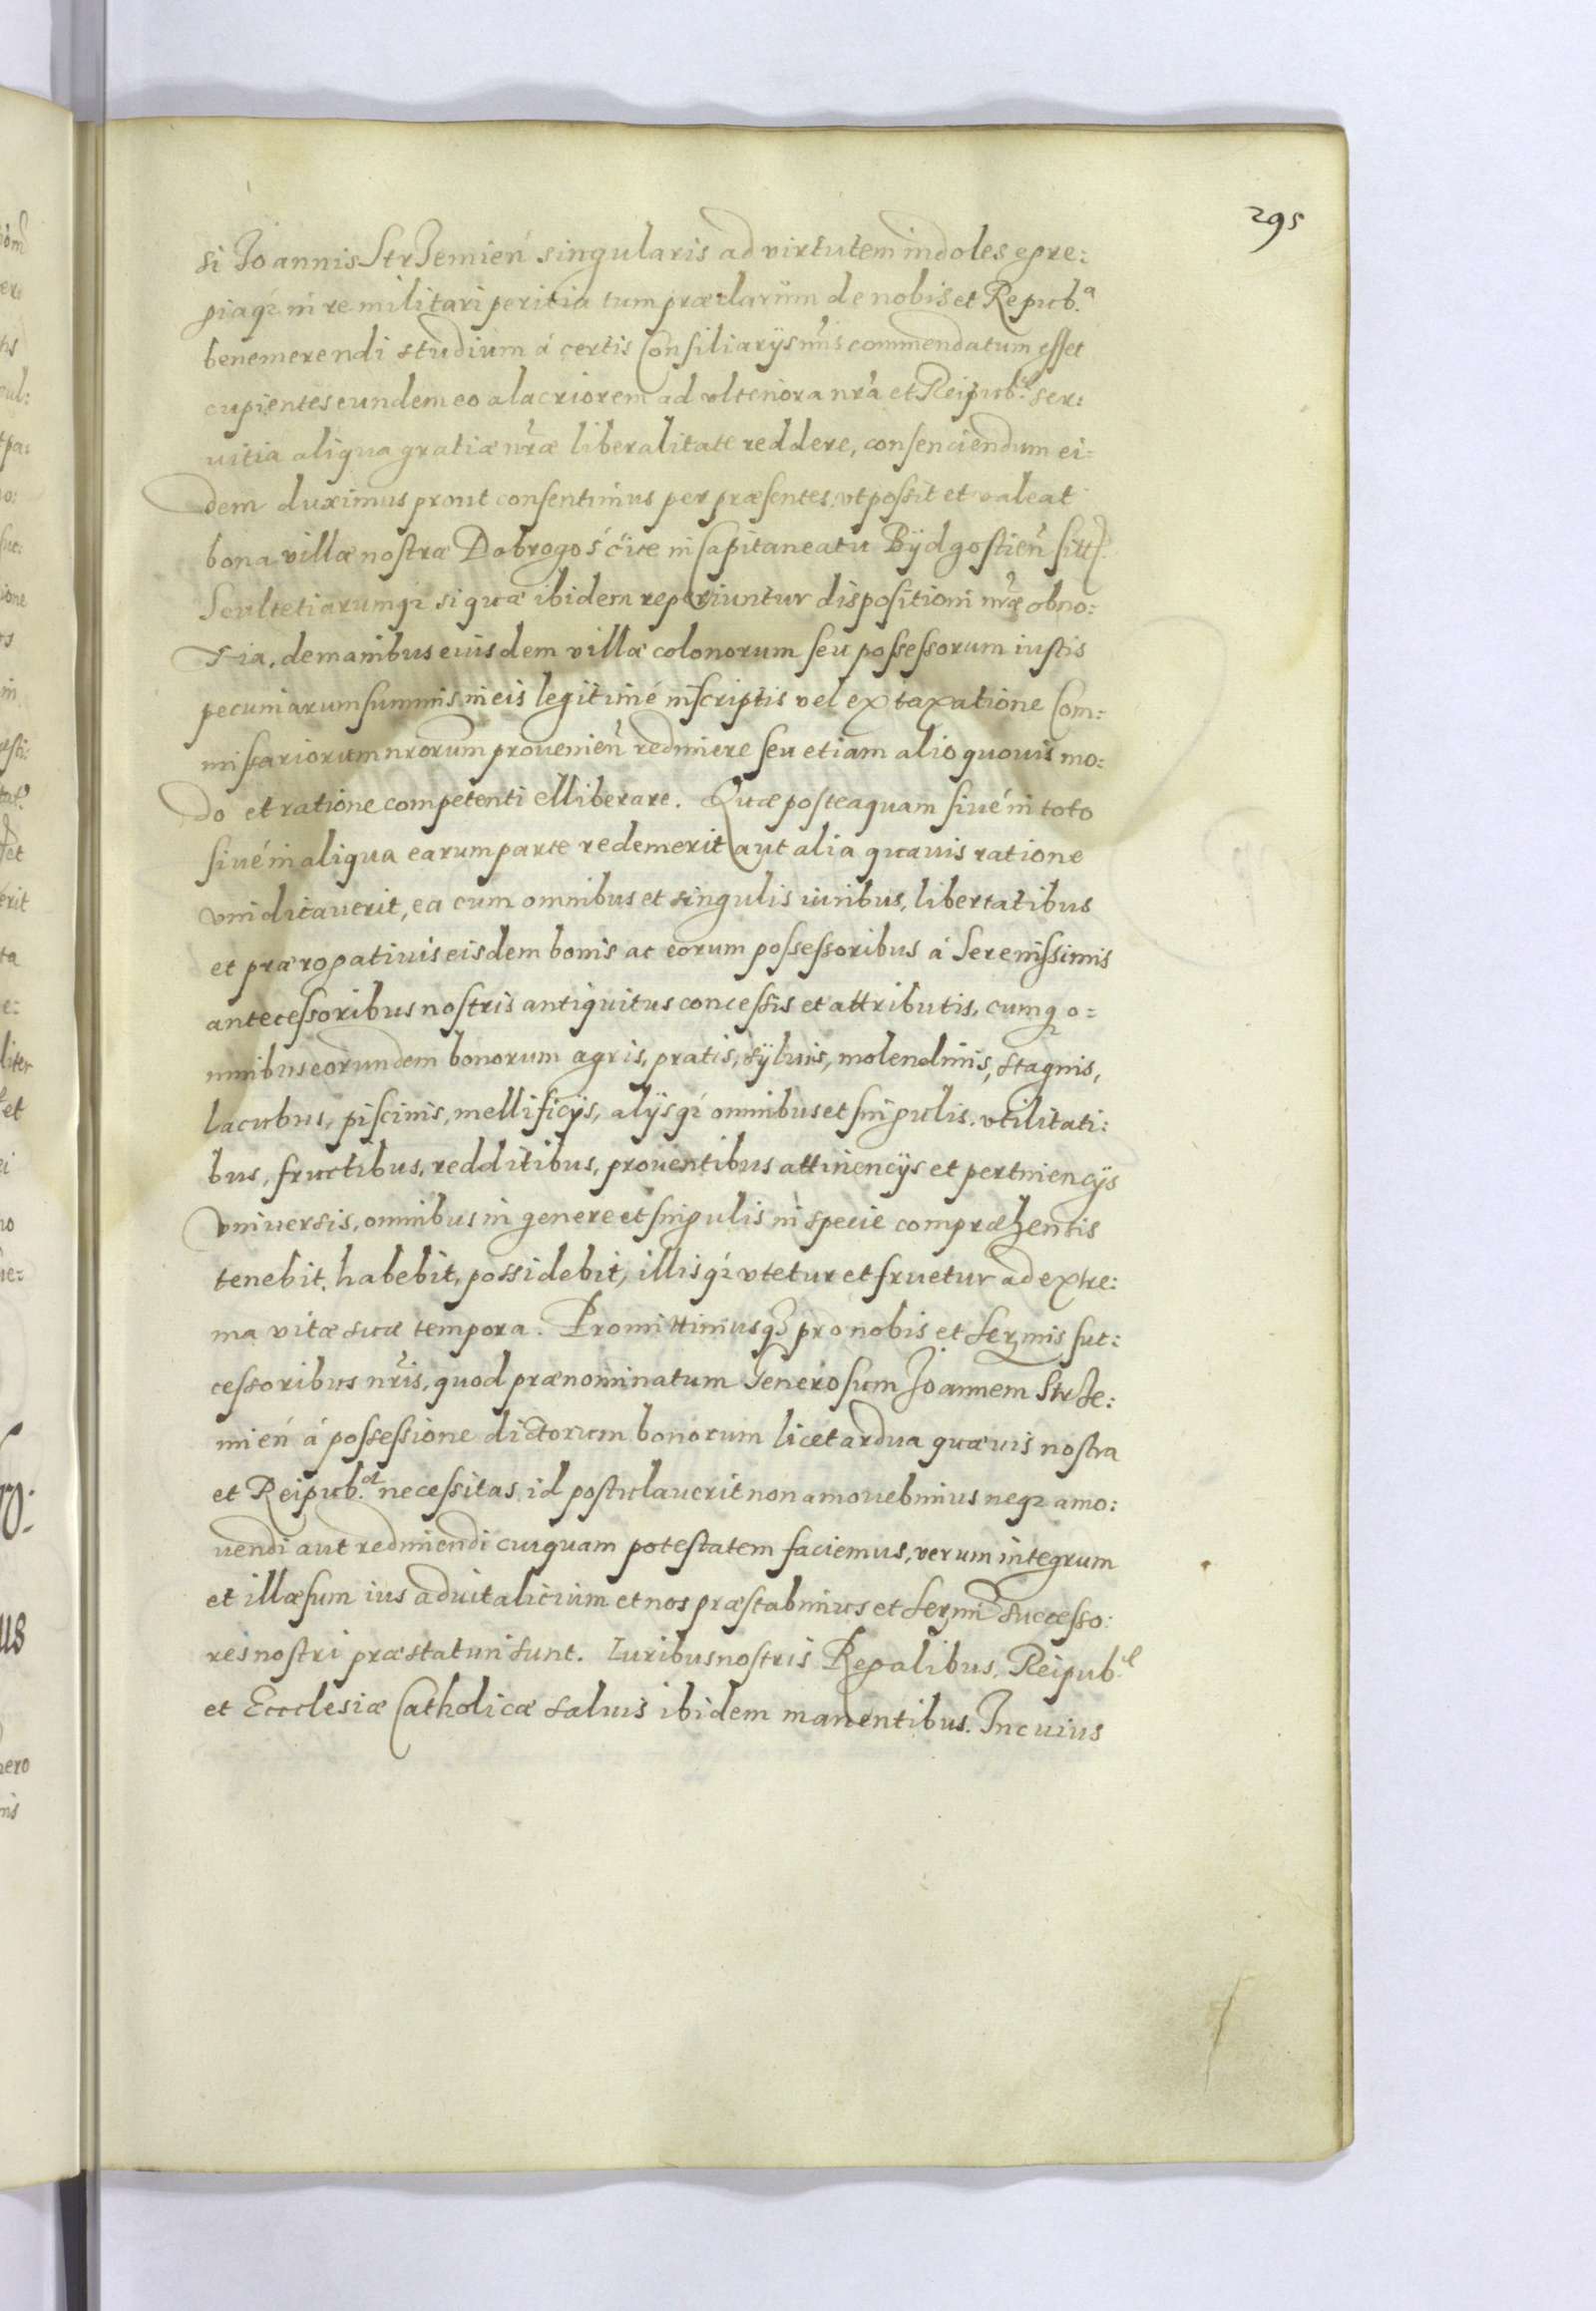 295
si Joannis Strzemień singularis ad virtutem indoles egre:
giaq; in re militari peritia tum præclarum de nobis et Repub.a
benemerendi studium á certis Consiliarijs nr̃is commendatum esset
cupientes eundem eo alacriorem ad vlteriora nr̃a et Reipub.e ser:
uitia aliqua gratiæ nr̃æ liberalitate reddere, consenciendum ei:
dem duximus prout consentimus per præsentes, vt possit et valeat
bona villæ nostræ Dobrogośćice in Capitaneatu Bÿdgostień
Scultetiarumq; si quæ ibidem reperiuntur dispositioni nr̃æ obno:
xia, de manibus eiusdem villæ colonorum seu possessorum iustis
pecuniarum summis in eis legitimé inscriptis vel ex taxatione Com:
missariorum nrorum prouenień redimere seu etiam alio quouis mo:
do et ratione competenti elliberare. Quæ posteaquam siué in toto
siué in aliqua earum parte redemerit aut alia quauis ratione
vnidicauerit, ea cum omnibus et singulis iuribus, libertatibus
et prærogatiuis eisdem bonis ac eorum possessoribus á Serenissimis
antecessoribus nostris antiquitus concessis et attributis, cumq o:
mnibus eorundem bonorum agris, pratis, sÿluis, molendinis, stagnis,
lacubus, piscinis, mellificijs, alijsq; omnibus et singulis. vtilitati:
bus, fructibus, redditibus, prouentibus attinencijs et pertinencijs
vniuersis, omnibus in genere et singulis in specie compræhensis
tenebit, habebit, possidebit, illisq; vtetur et fruetur ad extre:
ma vitæ suæ tempora. Promittimusq; pro nobis et Sermis suc:
cessoribus nr̃is, quod prænominatum Generosum Joannem Strze:
mień á possessione dictorum bonorum licet ardua quæuis nostra
et Reipub.æ necessitas id postulauerit non amouebimus neq; amo:
uendi aut redimendi cuiquam potestatem faciemus, verum integrum
et illæsum ius aduitalicium et nos præstabimus et Sermi Successo:
res nostri præstaturi sunt. Iuribus nostris Regalibus, Reipub.e
et Ecclesiæ Catholicæ saluis ibidem manentibus. In cuius